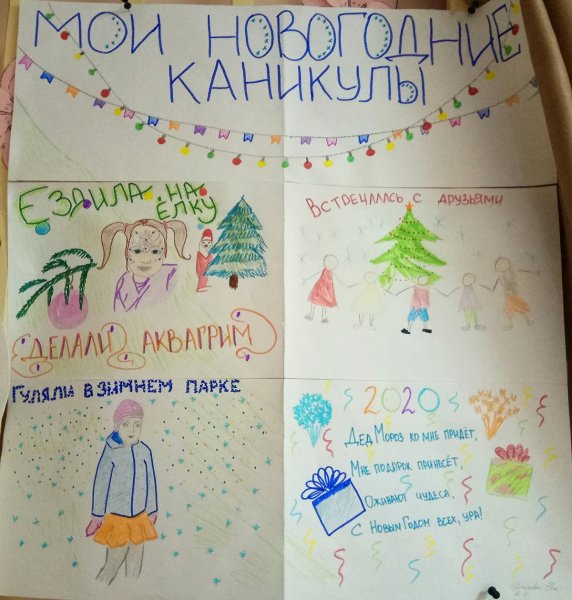 МОИ НОВОГОДНИЕ
КАНИКУЛЫ
ЕЗДИЛА НА
ЁЛКУ
ДЕЛАЛИ АКВАГРИМ
ВСТРЕЧАЛАСЬ С ДРУЗЬЯМИ
ГУЛЯЛИ В ЗИМНЕМ ПАРКЕ
2020
ДЕД МОРОЗ КО МНЕ ПРИДЁТ,
МНЕ ПОДАРОК ПРИНЕСЁТ,
ОЖИВАЮТ ЧУДЕСА,
С НОВЫМ ГОДОМ ВСЕХ, УРА!